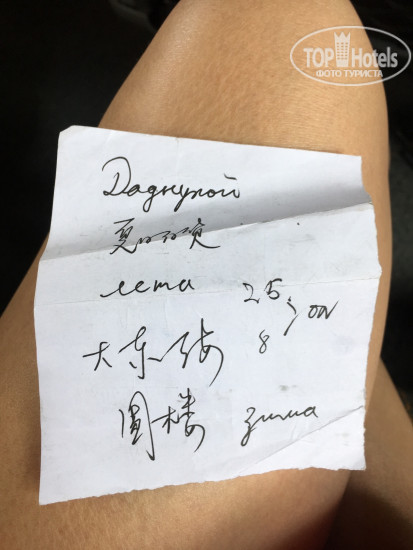 TOP Hotels
ФОТО ТУРИСТА
Дадунхой
夏日百货
лета 25
大东海 8
圆楼 зима